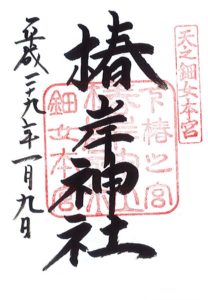 天之鈿女本宮
下椿之宮
椿岸神社
鈿女本宮
平成二十九年一月九日